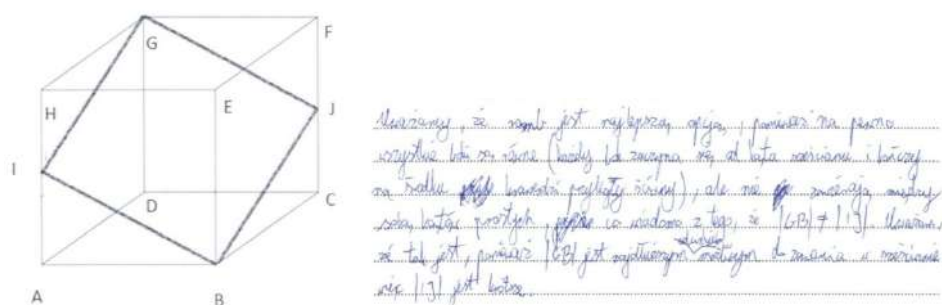 G
F
H
E
J
I
D
C
A
B
Uważamy, że romb jest najlepszą opcją, ponieważ na pewno
wszystkie boki są równe (każdy bok zaczyna się od kąta sześcianu i kończy
na środku krawędzi przyległej ściany), ale nie między
sobą kątów prostych, co wiadomo z tego, że |GB| ≠ |IJ|. Uważamy,
że tak jest, ponieważ |GB| jest najdłuższym możliwym do w sześcianie
więc |IJ| jest krótsze.